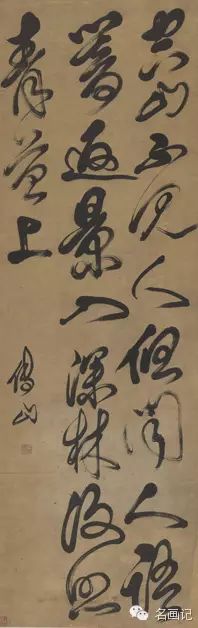 空山不見人但聞人語
響返景入深林復照
青苔上
傅山
名画记